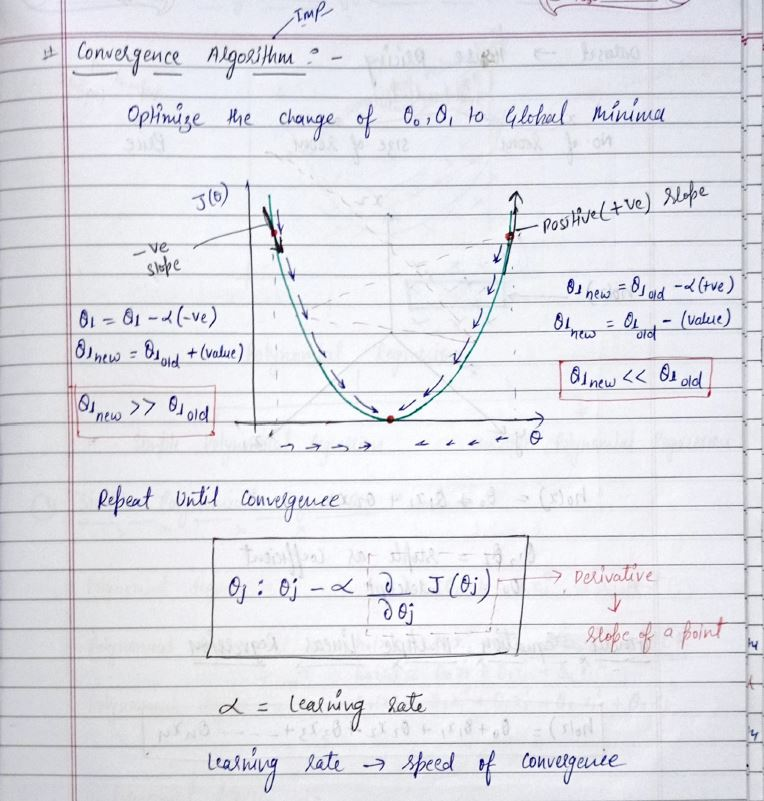 Imp
Convergence Algorithm : -
Optimize the change of θ0, θ1 to Global Minima
J(θ)
-ve
slope
Positive(+ve) slope
θ1 = θ1 - α(-ve)
θ1new = θ1old + (value)
θ1new >> θ1old
θ1new = θ1old - α(+ve)
θ1new = θ1old - (value)
θ1new << θ1old
θ
Repeat Until Convergence
θj : θj - α ∂/∂θj J(θj)
Derivative
slope of a point
α = Learning rate
Learning rate → speed of convergence